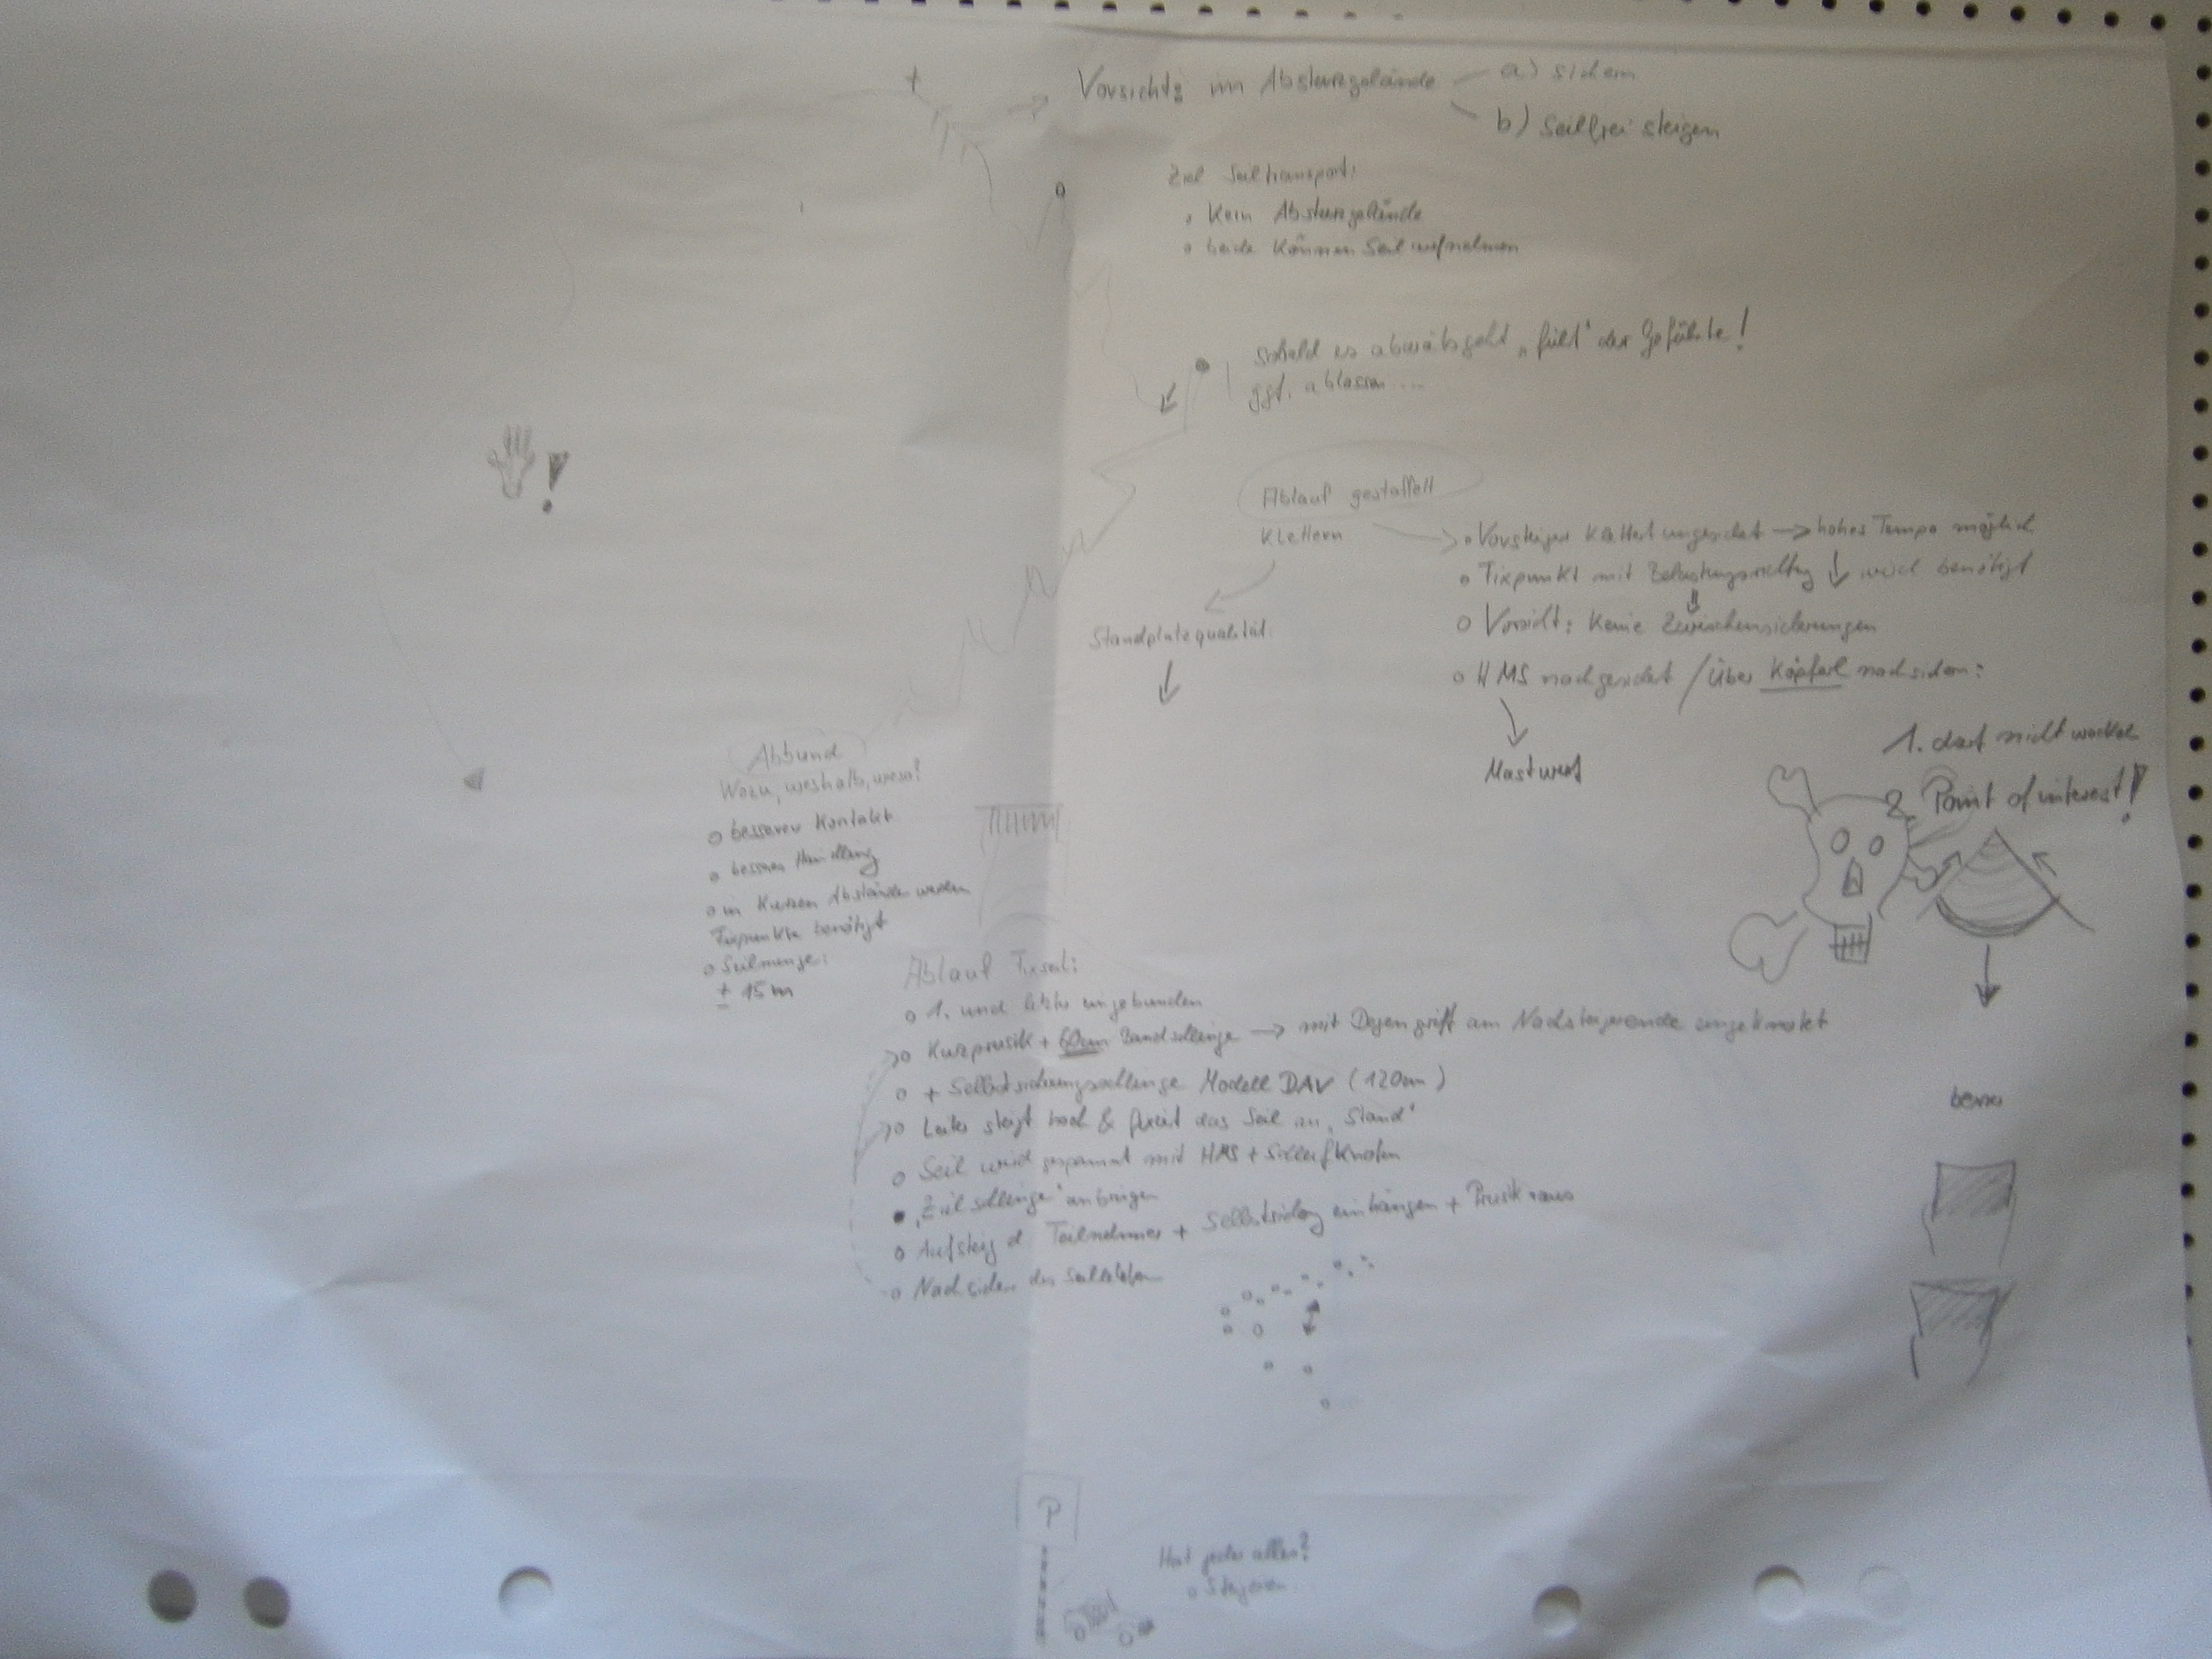 Vorsicht im Absturzgelände
a) sichern
b) Seilfrei steigen
Ziel Seiltransport:
Kein Absturzgelände
beide können Seil aufnehmen
sobald es abwärts geht „führt" der Gefährte!
ggf. ablassen ...
Ablauf gestaffelt
Klettern
Vorsteiger klettert ungesichert → hohes Tempo möglich
Fixpunkt mit Belastungsrichtung ↓ wird benötigt
Vorsicht: Keine Zwischensicherungen
HMS nachgesichert / Über Köpferl nachsichern:
Standplatzqualität
Mastwurf
1. darf nicht wackeln
2. Point of interest!
Wozu, weshalb, wieso?
besserer Kontakt
besseres Handling
in kurzen Abständen werden
Fixpunkte benötigt
Seilmenge:
± 15m
Ablauf
1. und letzter eingebunden
Kurzprusik + 60cm Bandschlinge → mit angeknotet
+ Selbstsicherungsschlinge Modell DAV (120cm)
Leiter steigt hoch & fixiert das Seil an „Stand"
Seil wird gespannt mit HMS + Schleifknoten
„Zielschlinge" anbringen
Aufstieg d. Teilnehmer + Selbstsicherung einhängen + Prusik raus
Nachsichern des Seilletzten
besser
P
Hat jeder alles?